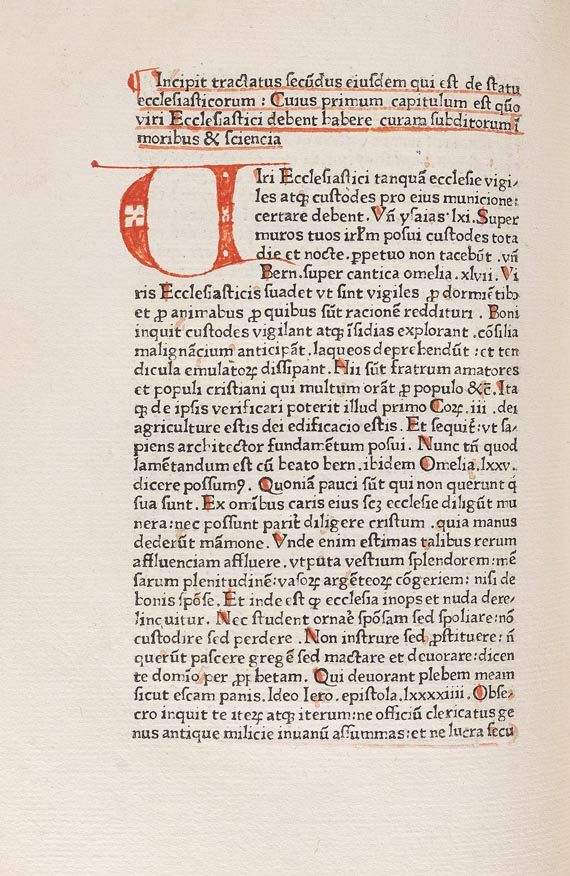 Incipit tractatus secūdus eiusdem qui est de statu
ecclesiasticorum : Cuius primum capitulum est qūo
viri Ecclesiastici debent habere curam subditorum ī
moribus & sciencia
VIri Ecclesiastici tanquā ecclesie vigi-
les atqꝫ custodes pro eius municione:
certare debent. Vn̄ ysaias .lxi. Super
muros tuos irl'm posui custodes tota
die et nocte. ꝑpetuo non tacebūt .vn̄
Bern. super cantica omelia .xlvii. Vi
ris Ecclesiasticis suadet vt sint vigiles ꝓ dormiētibꝫ
et ꝓ animabus ꝓ quibus sūt racionē reddituri . Boni
inquit custodes vigilant atqꝫ īsidias explorant .cōsilia
malignācium anticipāt. laqueos deprehendūt : et ten
dicula emulatoꝝ dissipant. Hii sūt fratrum amatores
et populi cristiani qui multum orāt ꝓ populo &c̄. Ita
qꝫ de ipsis verificari poterit illud primo Coꝝ. iii . dei
agriculture estis dei edificacio estis. Et sequit̄: vt sa-
piens architector fundamētum posui. Nunc tn̄ quod
lamētandum est cū beato bern. ibidem Omelia. lxxv.
dicere possumꝰ. Quoniā pauci sūt qui non querunt q̄
sua sunt. Ex omībus caris eius scꝫ ecclesie diligūt mu
nera: nec possunt parit̄ diligere cristum . quia manus
dederūt māmone. Vnde enim estimas talibus rerum
affluenciam affluere. vtputa vestium splendorem: mē
sarum plenitudinē: vasoꝝ argēteoꝝ cōgeriem: nisi de
bonis spōse. Et inde est ꝙ ecclesia inops et nuda dere-
linquitur. Nec student ornāē spōsam sed spoliare: nō
custodire sed perdere . Non instrure sed ꝓstituere: n̄
querūt pascere gregē sed mactare et deuorare: dicen
te domīo per ꝓphetam. Qui deuorant plebem meam
sicut escam panis. Ideo Iero. epistola. lxxxxiiii. Obse-
cro inquit te iteꝝ atqꝫ iterum: ne officiū clericatus ge
nus antique milicie inuanū assummas: et ne lucra secu